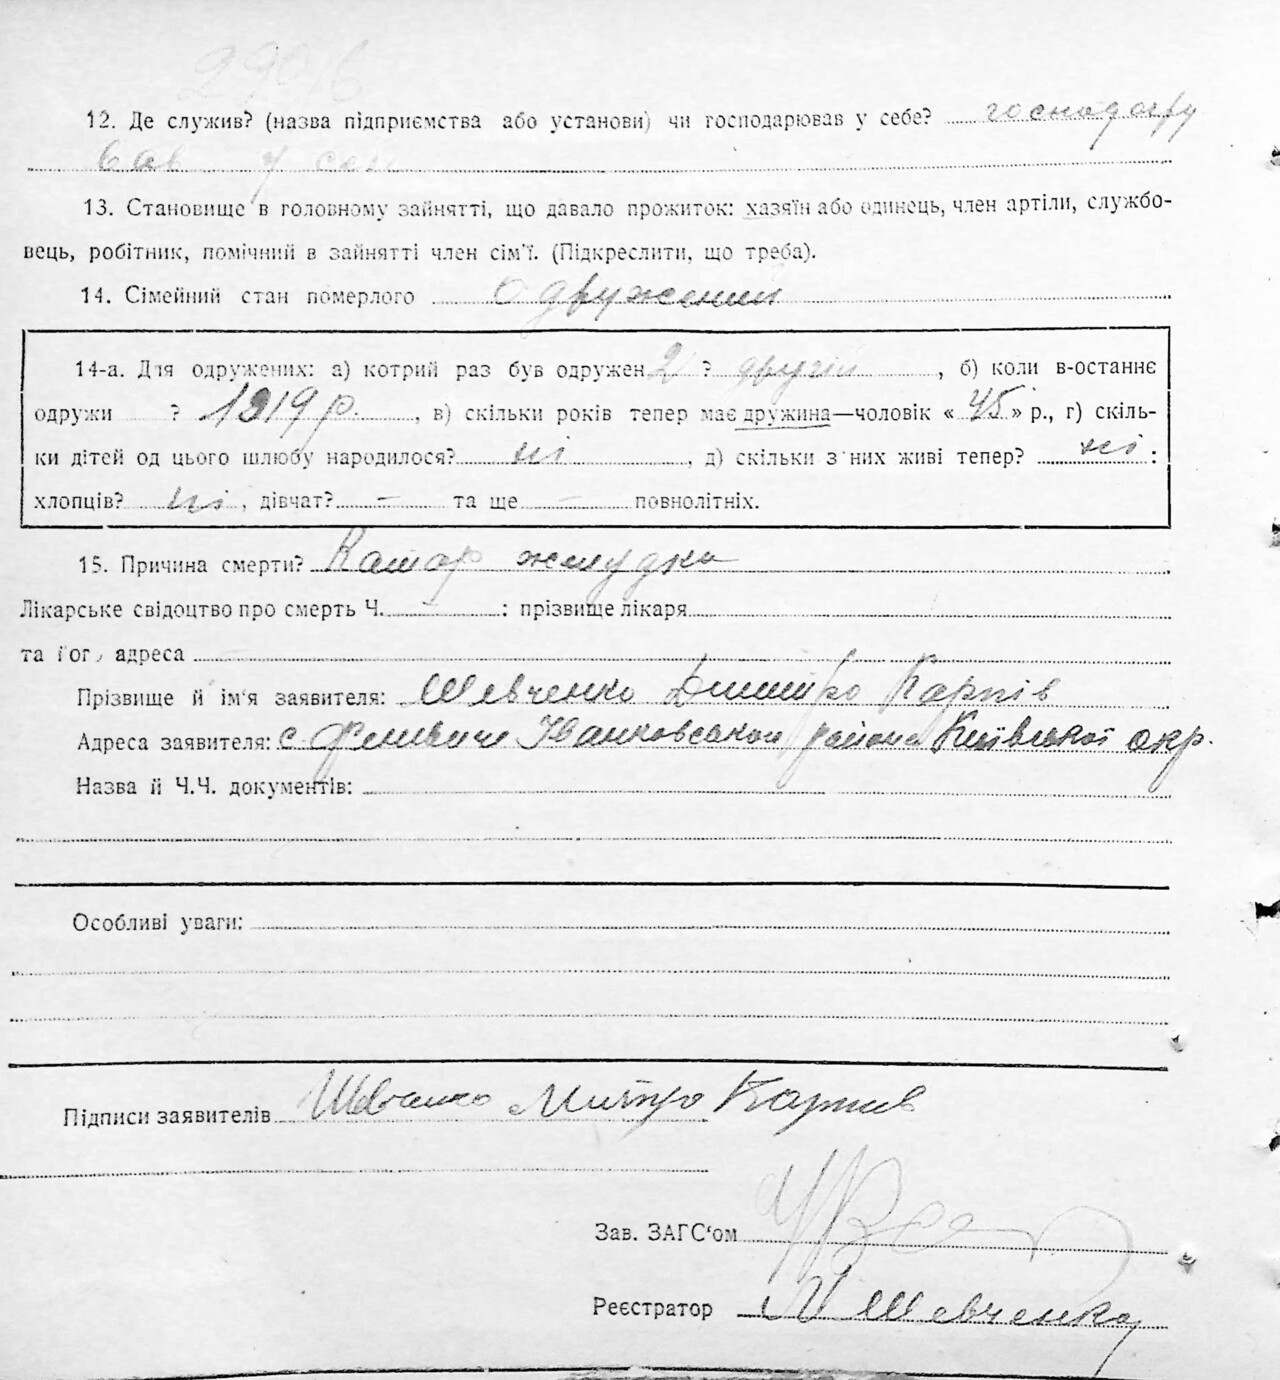 29016
12. Де служив? (назва підприємства або установи) чи господарював у себе? господарю
вав у себе
13. Становище в головному зайнятті, що давало прожиток: хазяїн або одинець, член артіли, службо-
вець, робітник, помічний в зайнятті член сім'ї. (Підкреслити, що треба).
14. Сімейний стан померлого одружений
14-а. Для одружених: а) котрий раз був одружен 2й ? другий, б) коли в-останнє
одружи ? 1919 р., в) скільки років тепер має дружина—чоловік « 45 » р., г) скіль-
ки дітей од цього шлюбу народилося? ні, д) скільки з них живі тепер? ні :
хлопців? ні, дівчат? – та ще – повнолітніх.
15. Причина смерти? Катар желудка
Лікарське свідоцтво про смерть Ч. – : прізвище лікаря
та його адреса
Прізвище й ім'я заявителя: Шевченко Дмитро Карпів
Адреса заявителя: с. Іванковського району Київської окр.
Назва й Ч.Ч. документів:
Особливі уваги:
Підписи заявителів Шевченко Митро Карпив
Зав. ЗАГС'ом
Реєстратор Шевченко